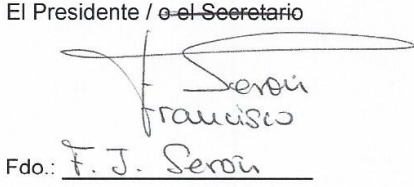 El Presidente / o el Secretario
Serón
Francisco
Fdo.: F. J. Serón